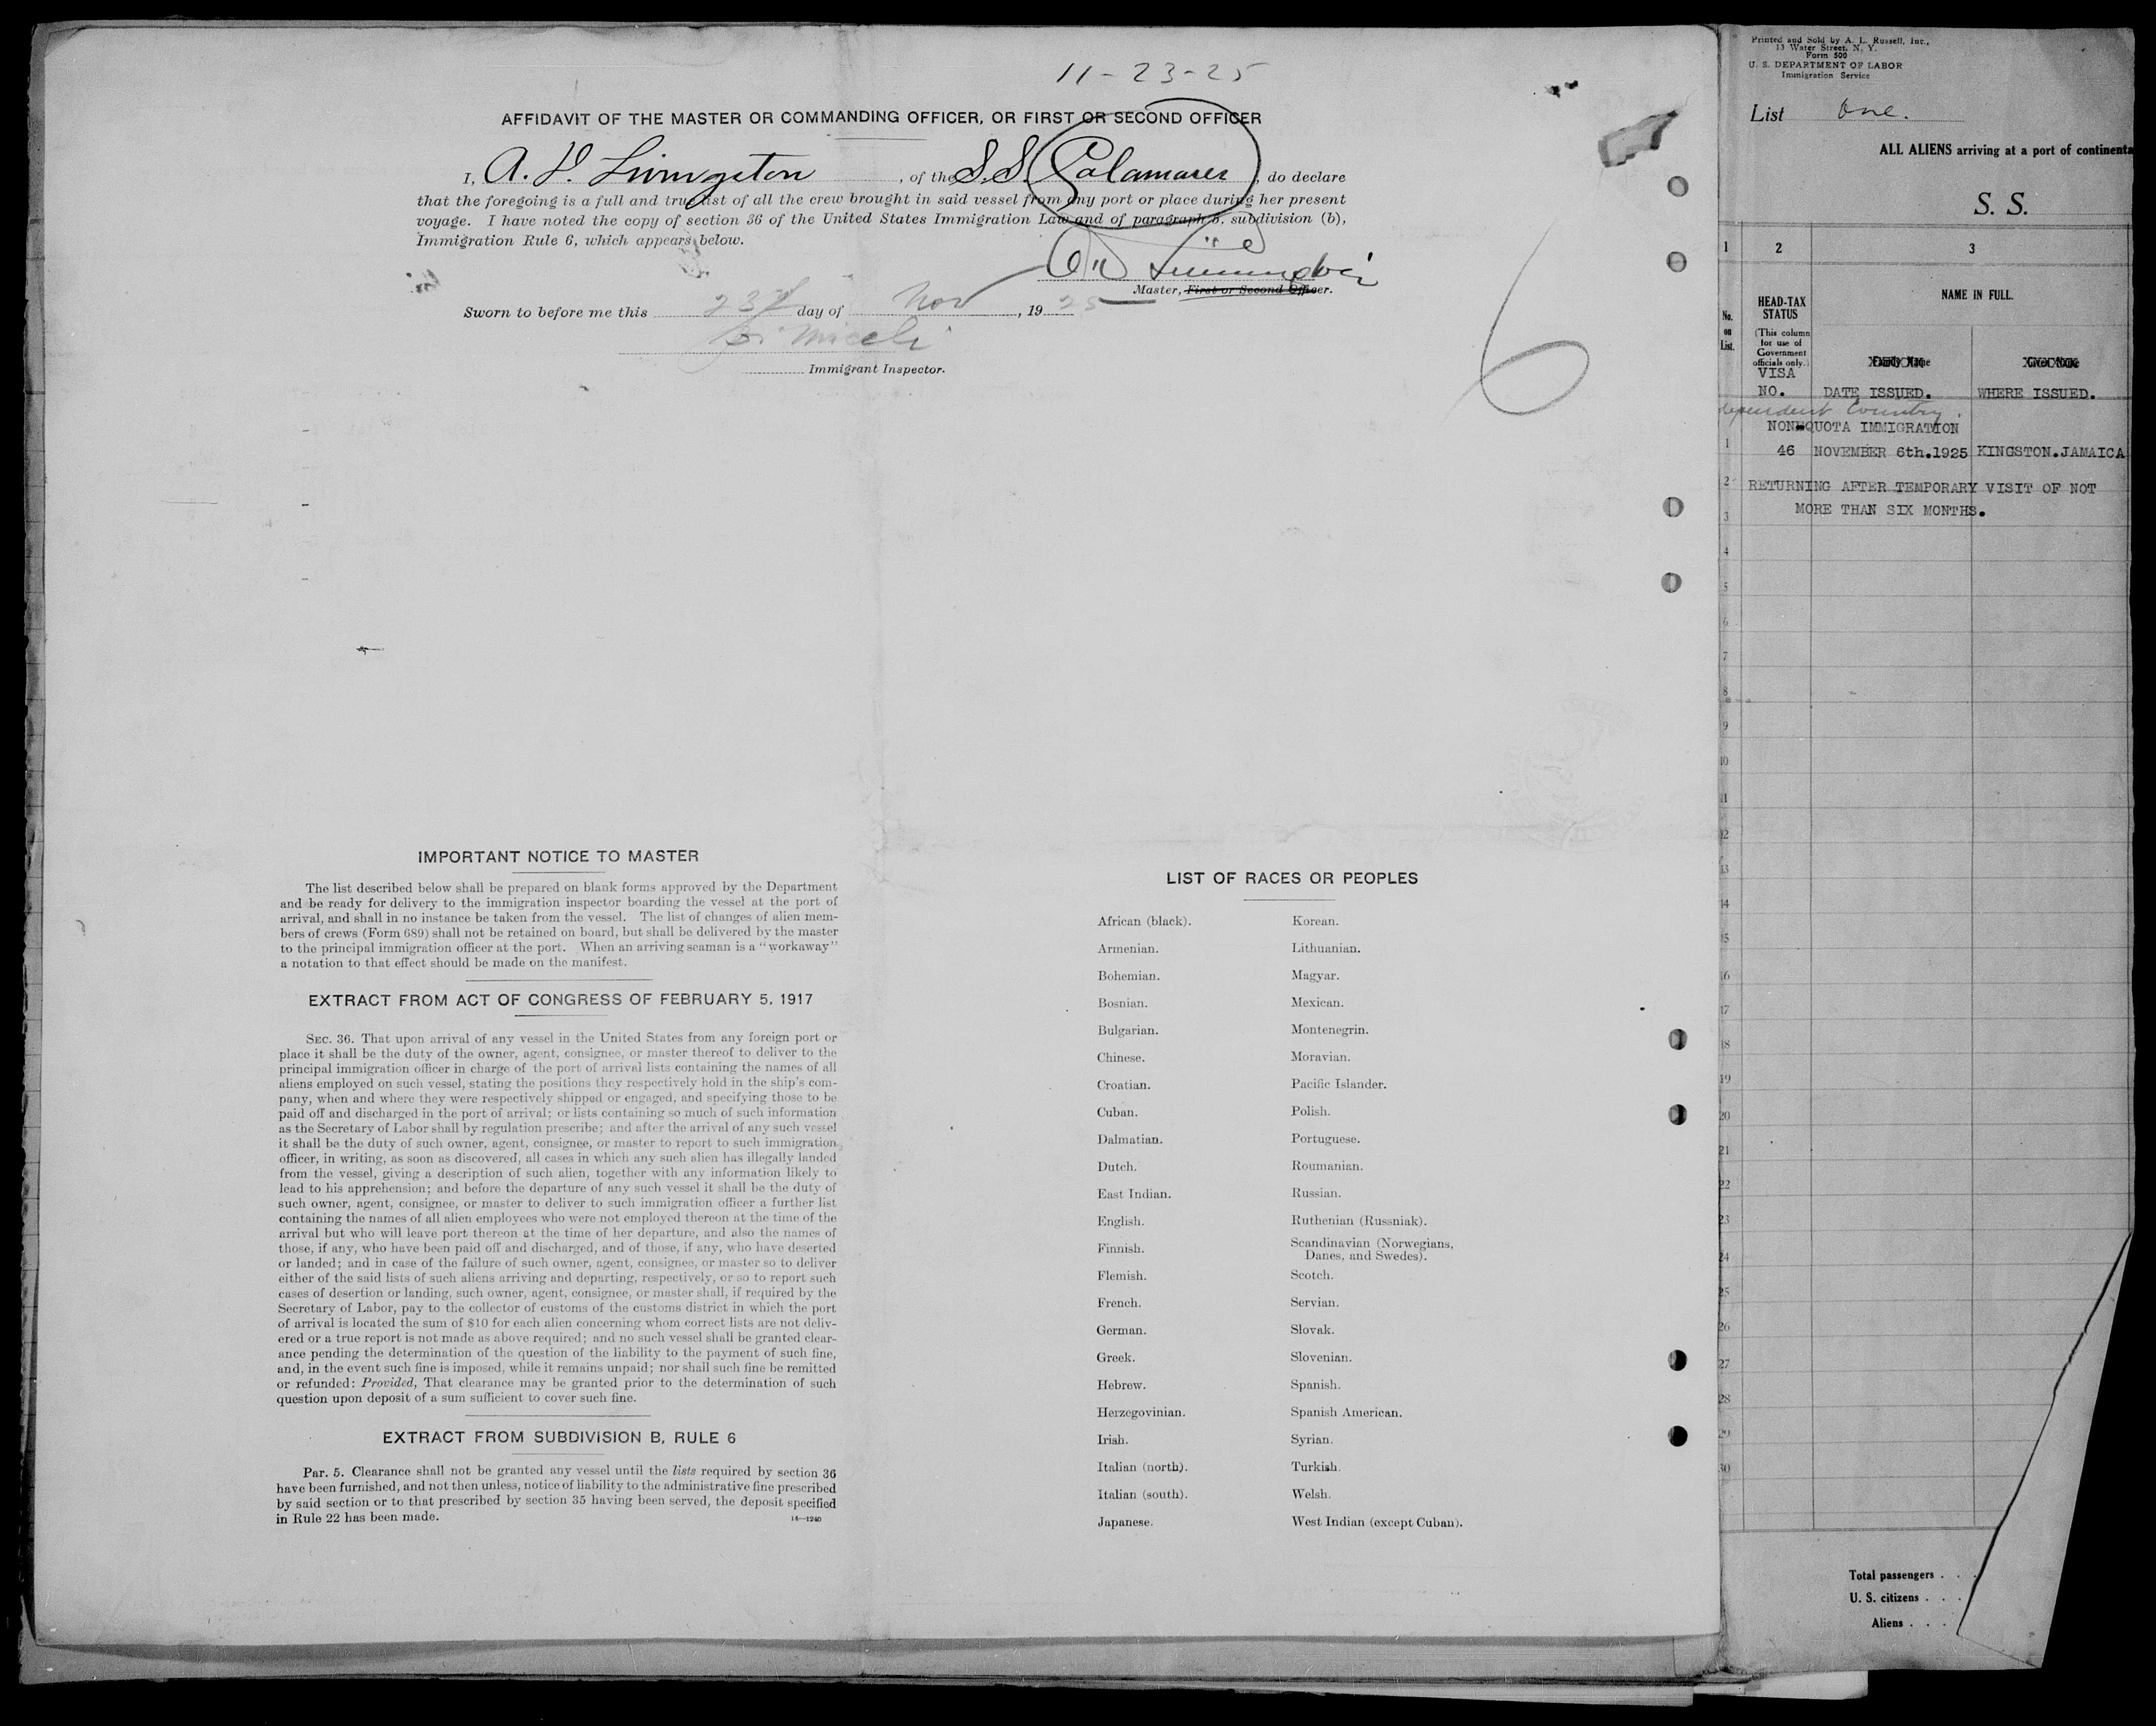 11-23-25
AFFIDAVIT OF THE MASTER OR COMMANDING OFFICER, OR FIRST OR SECOND OFFICER
I, A. D. Livingston, of the S.S. Calamares, do declare
that the foregoing is a full and true list of all the crew brought in said vessel from any port or place during her present
voyage. I have noted the copy of section 36 of the United States Immigration Law and of paragraph 5, subdivision (b),
Immigration Rule 6, which appears below.
Master, First or Second Officer.
Sworn to before me this 23d day of Nov, 1925
Immigrant Inspector.
6
IMPORTANT NOTICE TO MASTER
The list described below shall be prepared on blank forms approved by the Department
and be ready for delivery to the immigration inspector boarding the vessel at the port of
arrival, and shall in no instance be taken from the vessel. The list of changes of alien mem-
bers of crews (Form 689) shall not be retained on board, but shall be delivered by the master
to the principal immigration officer at the port. When an arriving seaman is a "workaway"
a notation to that effect should be made on the manifest.
EXTRACT FROM ACT OF CONGRESS OF FEBRUARY 5, 1917
SEC. 36. That upon arrival of any vessel in the United States from any foreign port or
place it shall be the duty of the owner, agent, consignee, or master thereof to deliver to the
principal immigration officer in charge of the port of arrival lists containing the names of all
aliens employed on such vessel, stating the positions they respectively hold in the ship's com-
pany, when and where they were respectively shipped or engaged, and specifying those to be
paid off and discharged in the port of arrival; or lists containing so much of such information
as the Secretary of Labor shall by regulation prescribe; and after the arrival of any such vessel
it shall be the duty of such owner, agent, consignee, or master to report to such immigration
officer, in writing, as soon as discovered, all cases in which any such alien has illegally landed
from the vessel, giving a description of such alien, together with any information likely to
lead to his apprehension; and before the departure of any such vessel it shall be the duty of
such owner, agent, consignee, or master to deliver to such immigration officer a further list
containing the names of all alien employees who were not employed thereon at the time of the
arrival but who will leave port thereon at the time of her departure, and also the names of
those, if any, who have been paid off and discharged, and of those, if any, who have deserted
or landed; and in case of the failure of such owner, agent, consignee, or master so to deliver
either of the said lists of such aliens arriving and departing, respectively, or so to report such
cases of desertion or landing, such owner, agent, consignee, or master shall, if required by the
Secretary of Labor, pay to the collector of customs of the customs district in which the port
of arrival is located the sum of $10 for each alien concerning whom correct lists are not deliv-
ered or a true report is not made as above required; and no such vessel shall be granted clear-
ance pending the determination of the question of the liability to the payment of such fine,
and, in the event such fine is imposed, while it remains unpaid; nor shall such fine be remitted
or refunded: Provided, That clearance may be granted prior to the determination of such
question upon deposit of a sum sufficient to cover such fine.
EXTRACT FROM SUBDIVISION B, RULE 6
Par. 5. Clearance shall not be granted any vessel until the lists required by section 36
have been furnished, and not then unless, notice of liability to the administrative fine prescribed
by said section or to that prescribed by section 35 having been served, the deposit specified
in Rule 22 has been made.
14—1240
LIST OF RACES OR PEOPLES
African (black).
Armenian.
Bohemian.
Bosnian.
Bulgarian.
Chinese.
Croatian.
Cuban.
Dalmatian.
Dutch.
East Indian.
English.
Finnish.
Flemish.
French.
German.
Greek.
Hebrew.
Herzegovinian.
Irish.
Italian (north).
Italian (south).
Japanese.
Korean.
Lithuanian.
Magyar.
Mexican.
Montenegrin.
Moravian.
Pacific Islander.
Polish.
Portuguese.
Roumanian.
Russian.
Ruthenian (Russniak).
Scandinavian (Norwegians,
Danes, and Swedes).
Scotch.
Servian.
Slovak.
Slovenian.
Spanish.
Spanish American.
Syrian.
Turkish.
Welsh.
West Indian (except Cuban).
Printed and Sold by A. L. Russell, Inc.,
13 Water Street, N. Y.
Form 500
U. S. DEPARTMENT OF LABOR
Immigration Service
List One.
ALL ALIENS arriving at a port of continenta
S. S.
1 2 3
No. on List.
HEAD-TAX
STATUS
(This column
for use of
Government
officials only.)
NAME IN FULL.
Family Name Given Name
VISA
NO. DATE ISSUED. WHERE ISSUED.
dependent Country.
NON-QUOTA IMMIGRATION
1 46 NOVEMBER 6th.1925 KINGSTON.JAMAICA
2 RETURNING AFTER TEMPORARY VISIT OF NOT
3 MORE THAN SIX MONTHS.
4
5
6
7
8
9
10
11
12
13
14
15
16
17
18
19
20
21
22
23
24
25
26
27
28
29
30
Total passengers . . .
U. S. citizens . . .
Aliens . . .